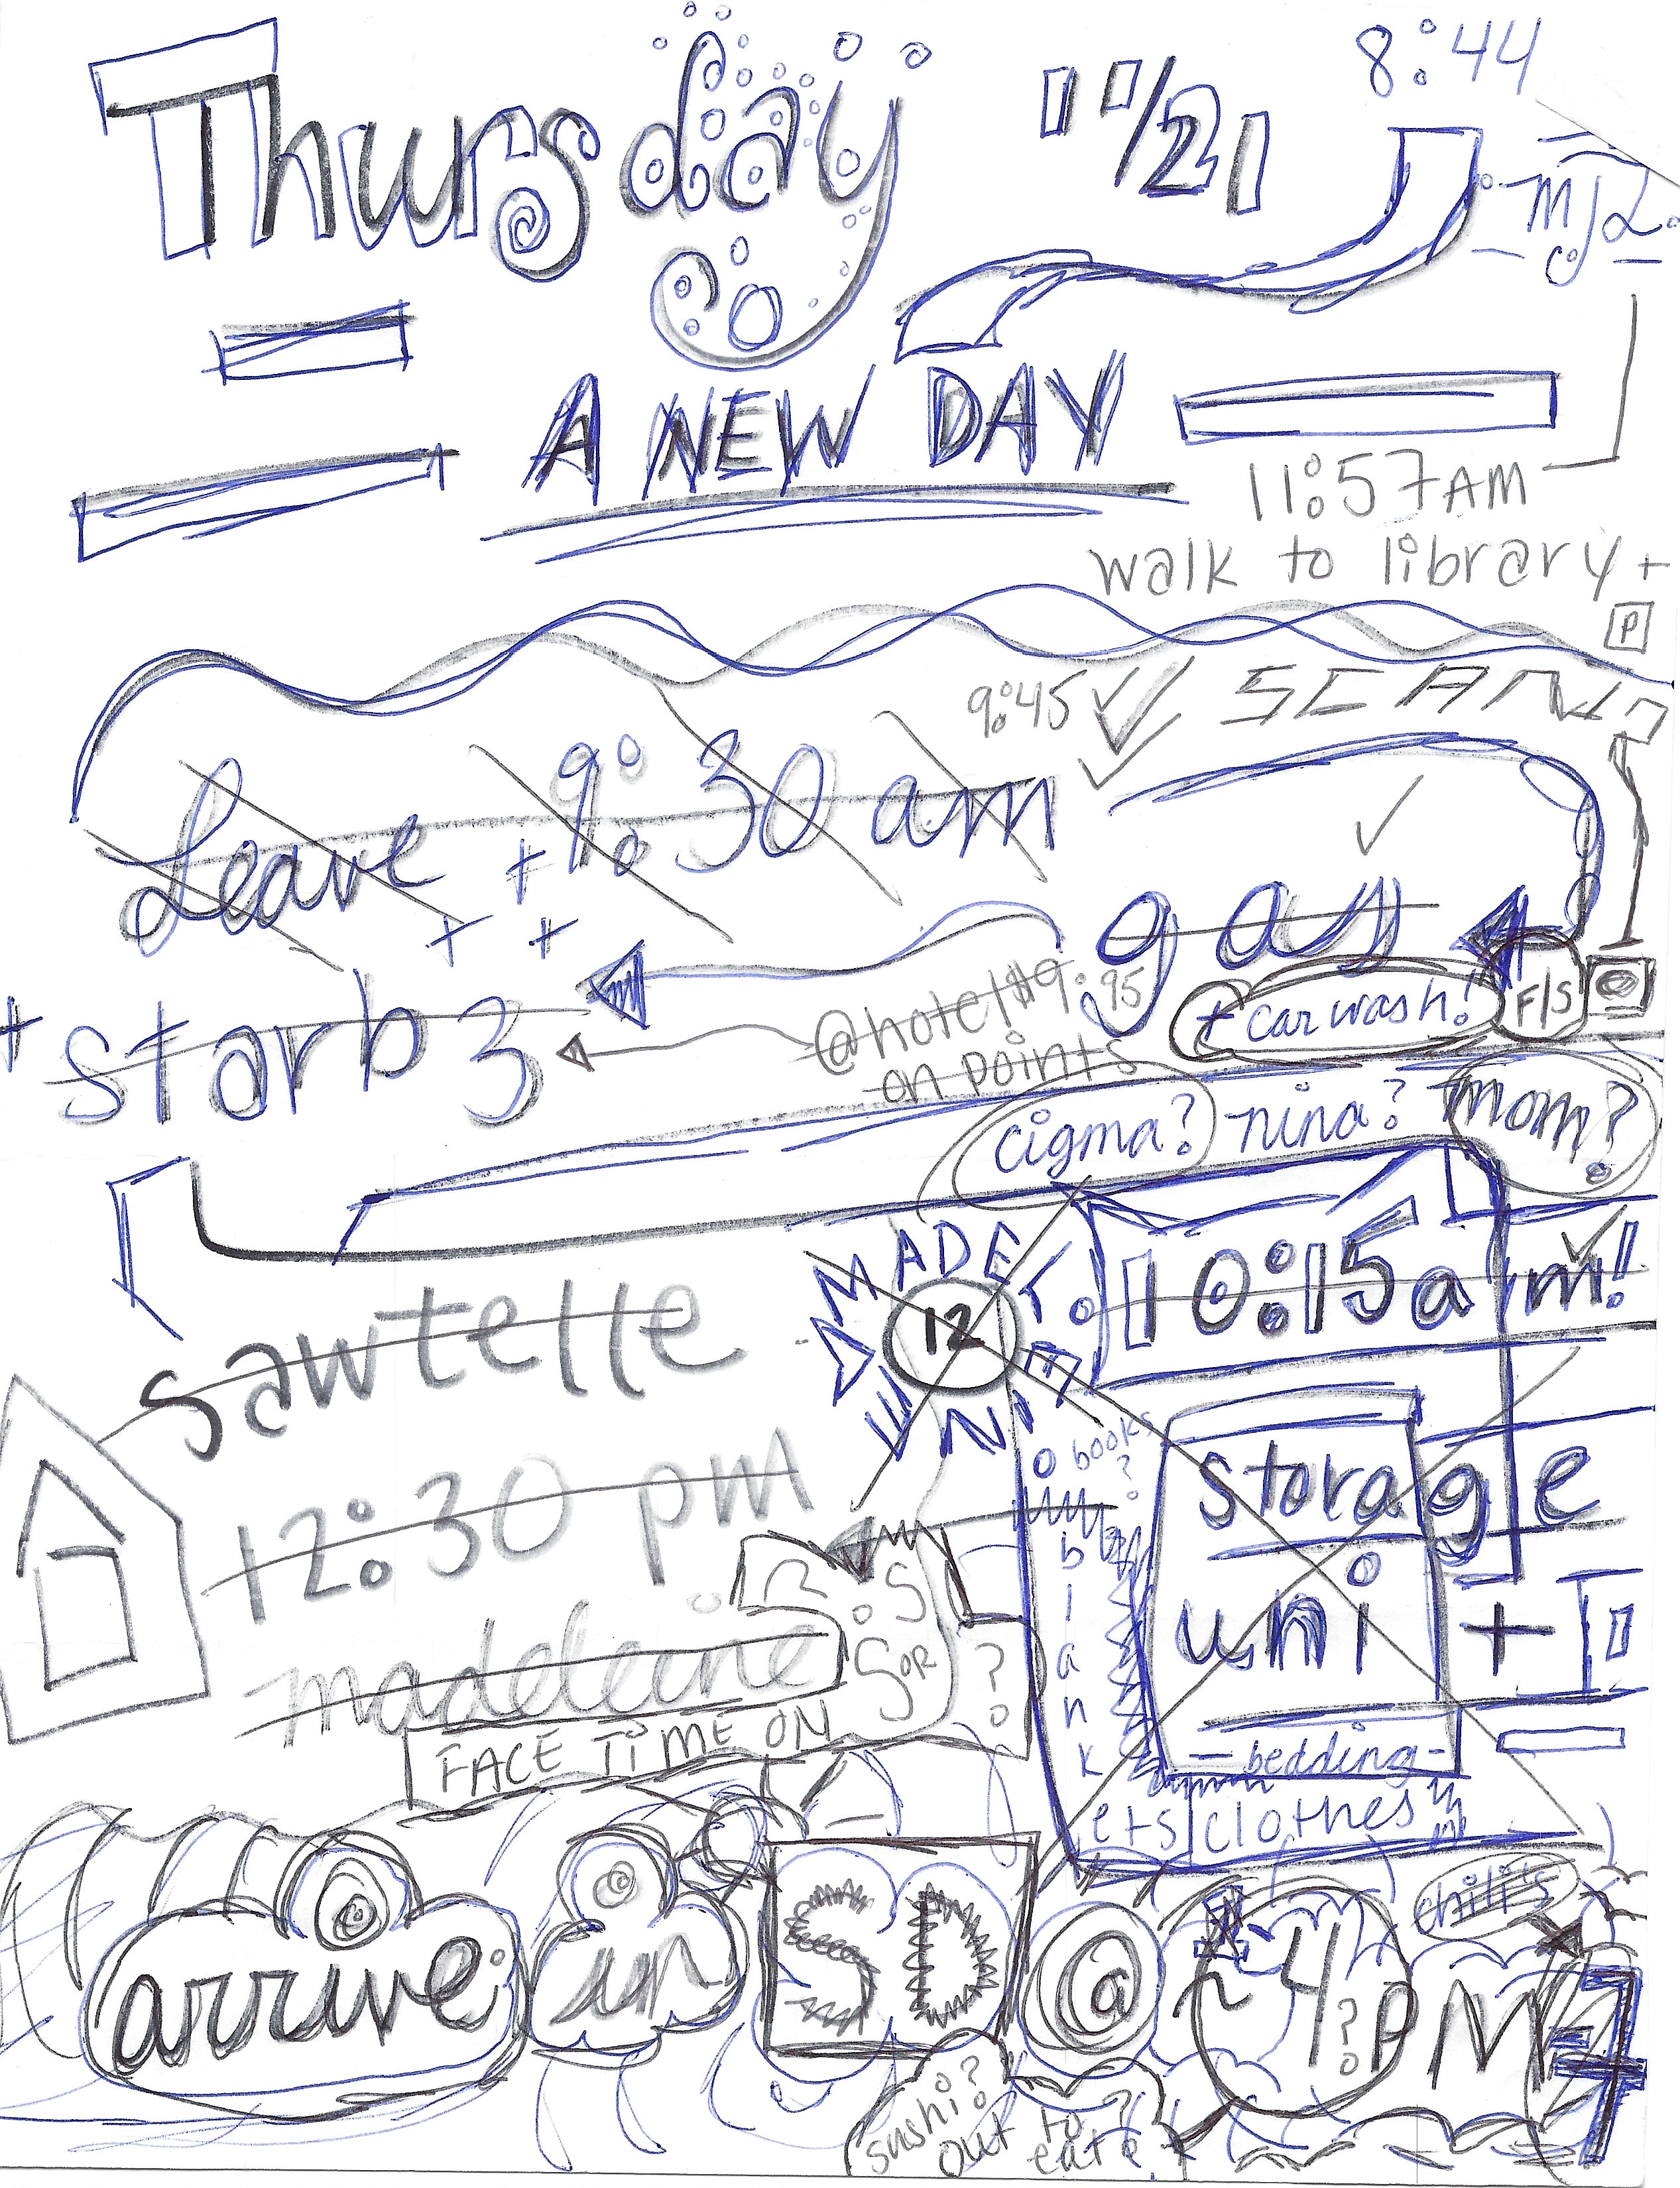 8:44
Thursday 11/21
MJL
A NEW DAY
11:57AM
walk to library +
P
9:45
SCAN
Leave 9:30 am
gas
+ car wash!
F/S
+ starb
@hotel $9.95
on points
cigma? - nina? mom?
MADE TO
12
10:15am!
sawtelle
12:30 pm
madeleine
books
?
storage
uni
blankets
- bedding -
clothes
S
OR
?
FACE TIME ON
chili's
arrive in SD @ ~4 PM
?
sushi?
out to
eat?